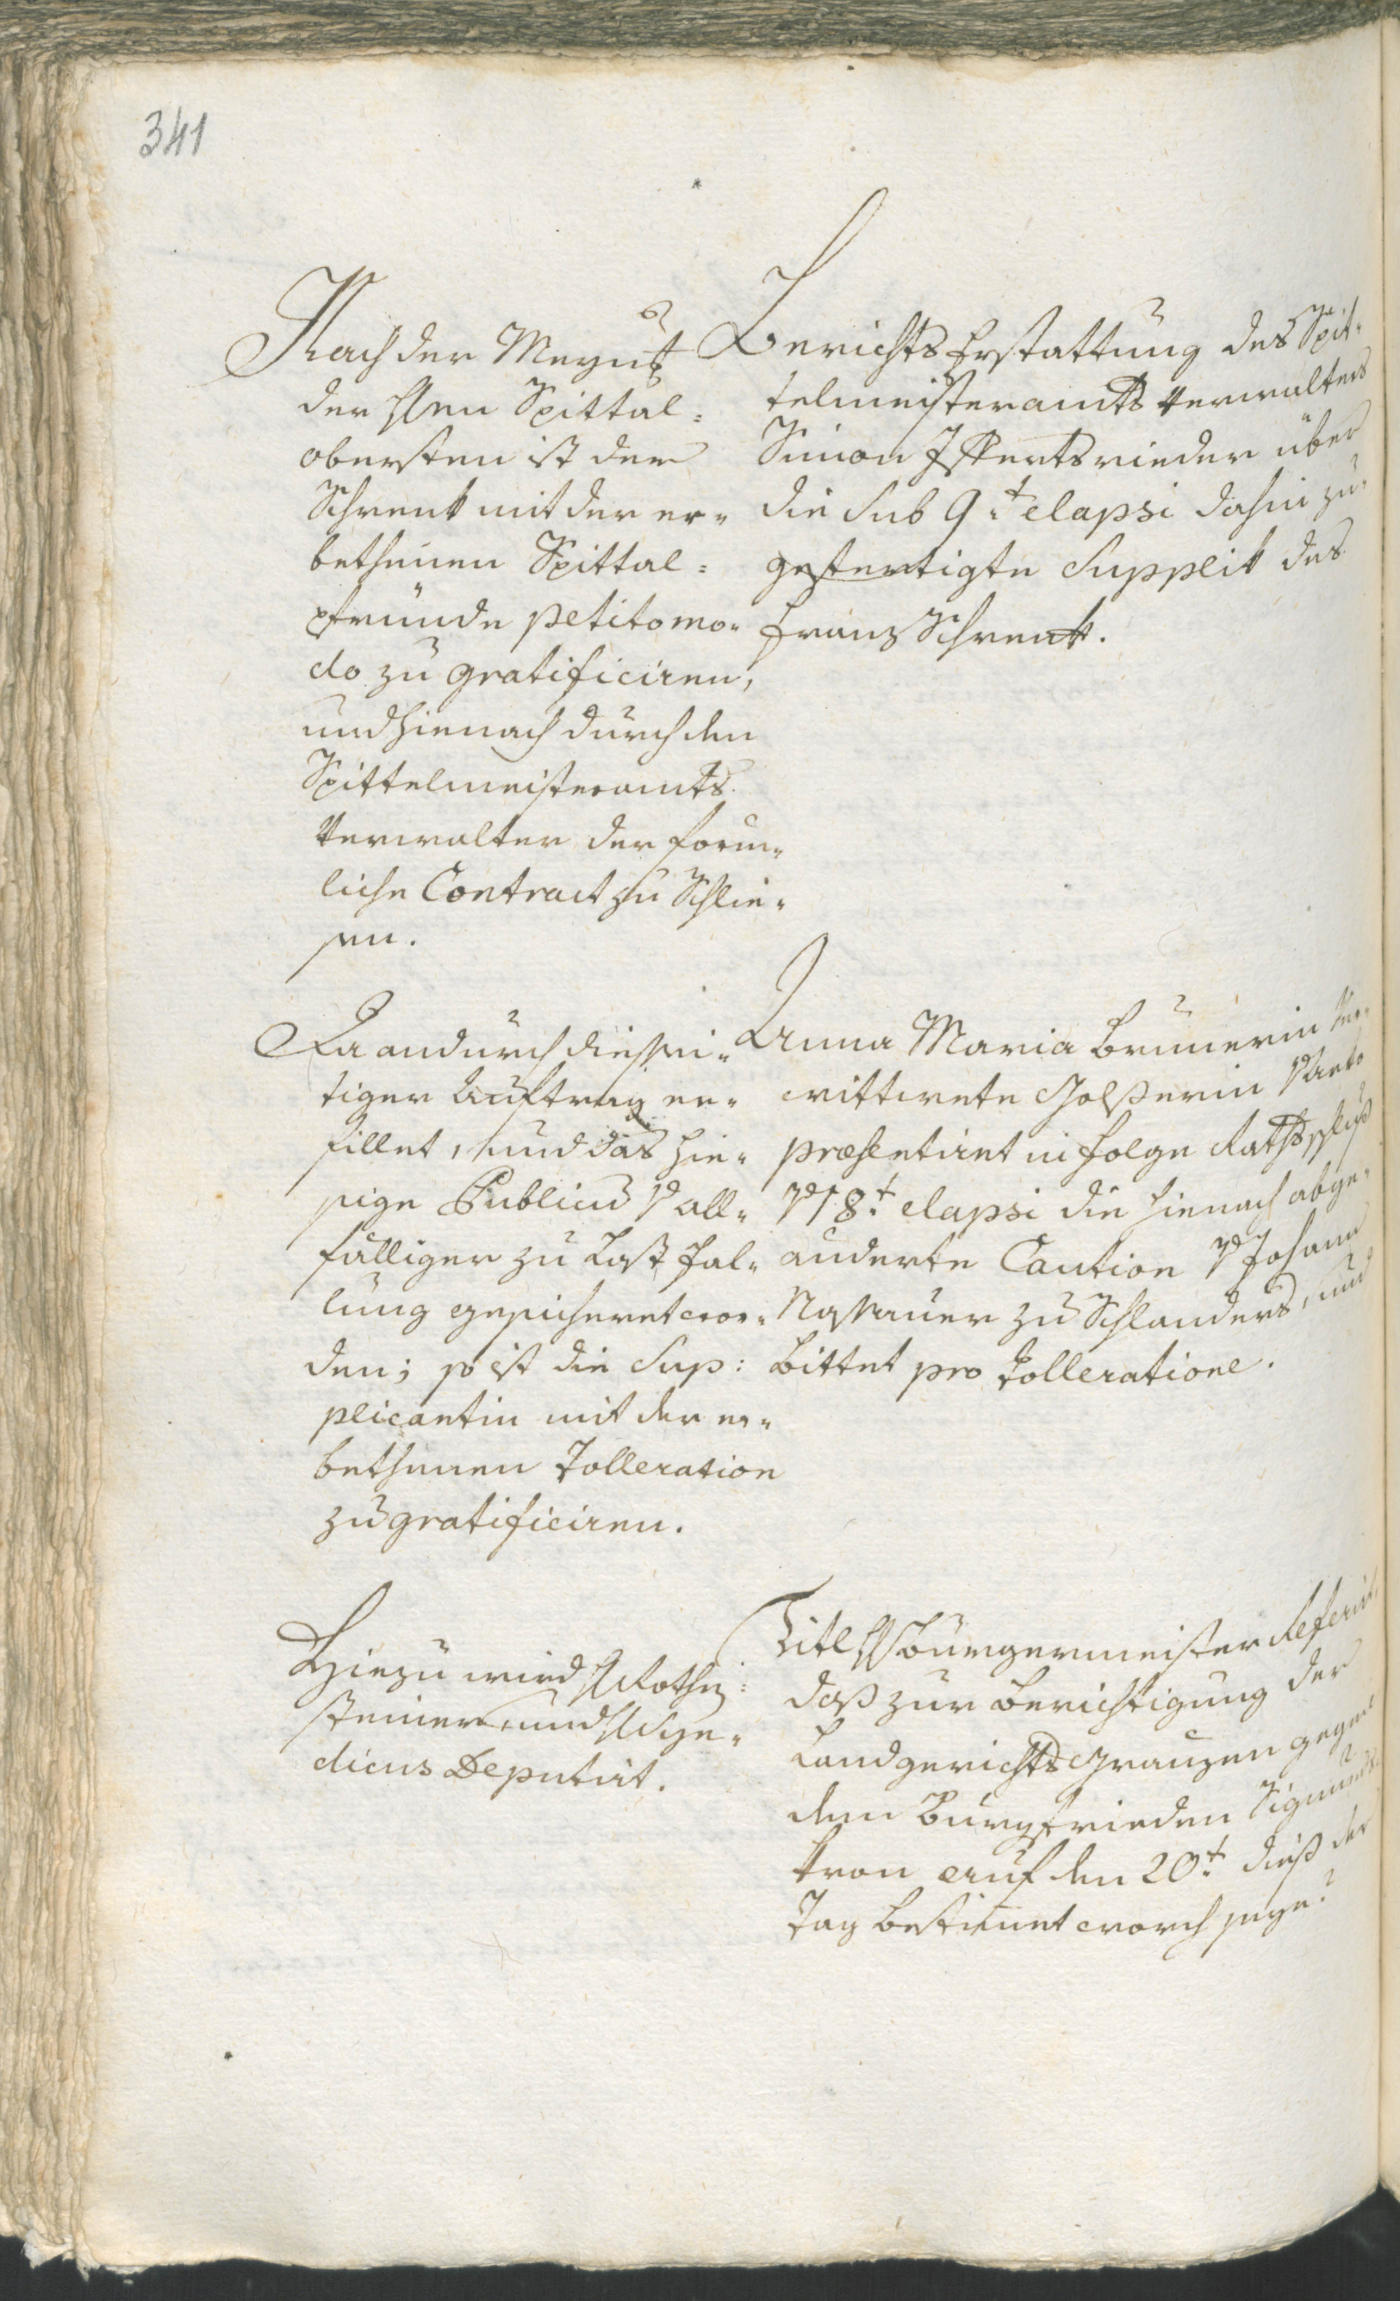 341
Nach der Meynug
der H Hen Spittal-
obersten ist der
Schrenk mit der er-
bethenen Spittal-
pfrunde petito mo-
do zu gratificiren,
und hienach durch den
Spittelmeisteramts
Verwalter der form-
liche Contract zu Schlie-
sen.
Berichts Erstattung des Spit-
telmeisteramts Verwalters
Simon über
die sub 9t elapsi dahin zu-
gefertigte Supplik des
Franz Schrenk.
Da andurch diessei-
tiger Auftrag er-
fillet, und das hie-
sige Publicum allen-
fälliger zu Last fal-
lung gesicheret wor-
den; so ist die Sup:
plicantin mit der er-
bethenen Tolleration
zu gratificiren.
Anna Maria Brunerin ver-
wittwete Holßerin
præsentiret in folge Rathsschluß
18t elapsi die hienach abge-
änderte Caution Johann
Nassauer zu Schlanders, und
bittet pro tolleratione.
Hiezu wird H Rothen-
steiner und H Syn-
dicus Deputirt.
Titl H Burgermeister Referirt,
daß zur Berichtigung der
Landgerichts Gränzen gegen
dem Burgfrieden Sigmunds-
kron auf den 20t dieß der
Tag bestimt word seye?